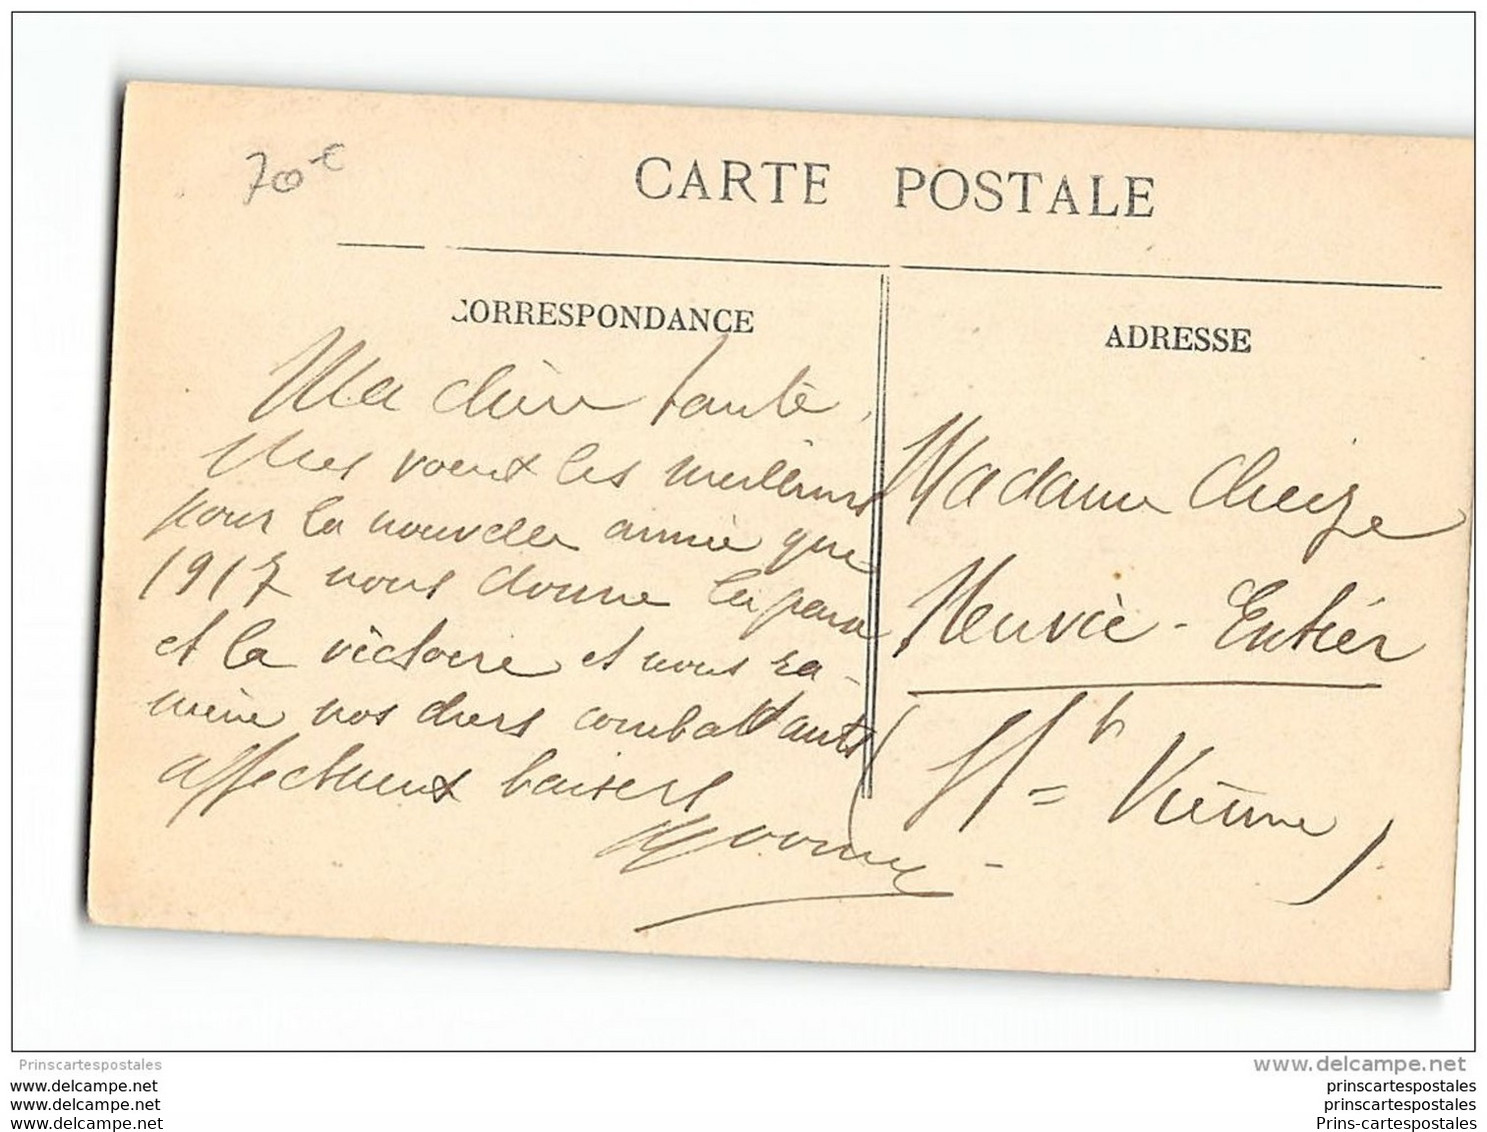 70 €
CARTE POSTALE
CORRESPONDANCE
Ma chère tante,
Mes voeux les meilleurs
pour la nouvelle année que
1917 nous donne la paix
et la victoire et nous ra-
mène nos chers combattants
affectueux baisers
Yvonne
ADRESSE
Madame Cheize
Neuvic-Entier
(Hte Vienne)
Prinscartespostales
www.delcampe.net
www.delcampe.net
www.delcampe.net
www.delcampe.net
prinscartespostales
prinscartespostales
Prins-cartespostales